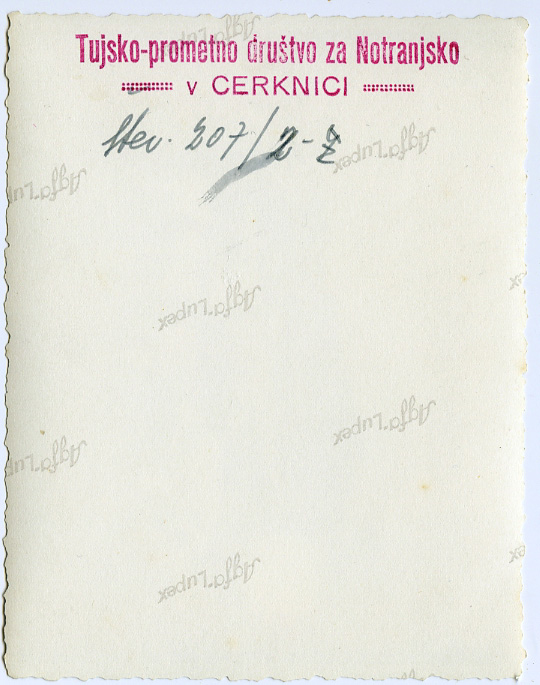 Tujsko-prometno društvo za Notranjsko
v CERKNICI
Štev. 207/2-Ž
Agfa-Lupex
Agfa-Lupex
Agfa-Lupex
Agfa-Lupex
Agfa-Lupex
Agfa-Lupex